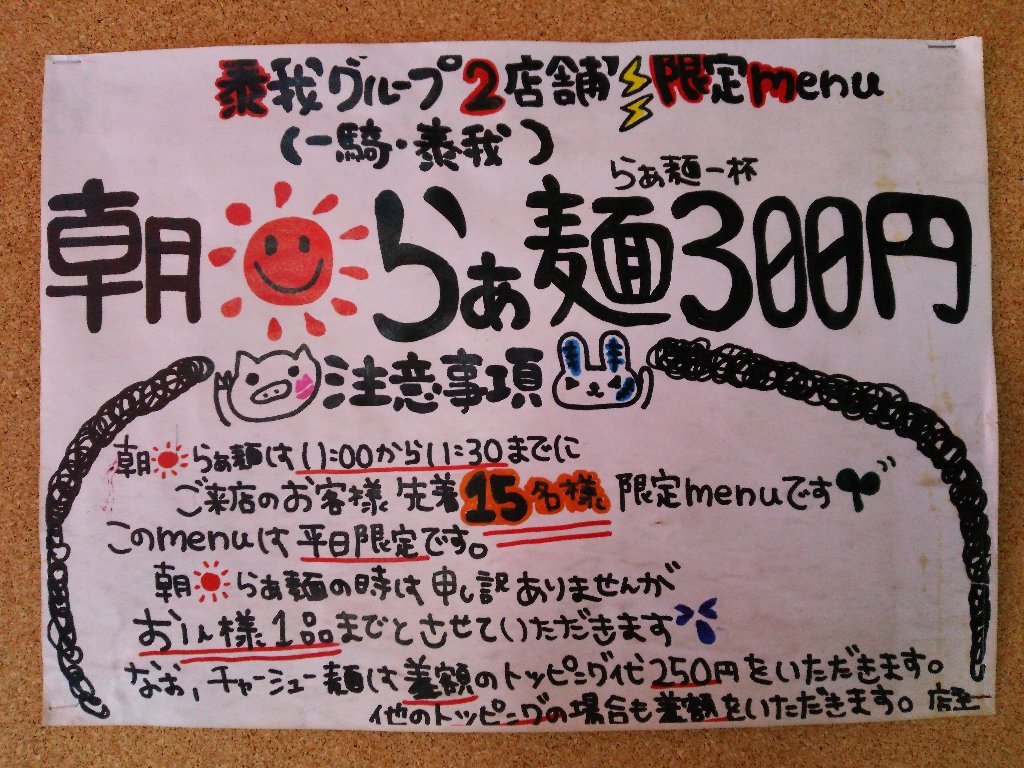 泰我グループ2店舗限定menu
(一騎・泰我)
らぁ麺一杯
朝らぁ麺300円
注意事項
朝らぁ麺は11:00から11:30までに
ご来店のお客様 先着15名様 限定menuです
このmenuは平日限定です。
朝らぁ麺の時は申し訳ありませんが
お1人様1品までとさせていただきます
なお,チャーシュー麺は差額のトッピング代250円をいただきます。
他のトッピングの場合も差額をいただきます。店主